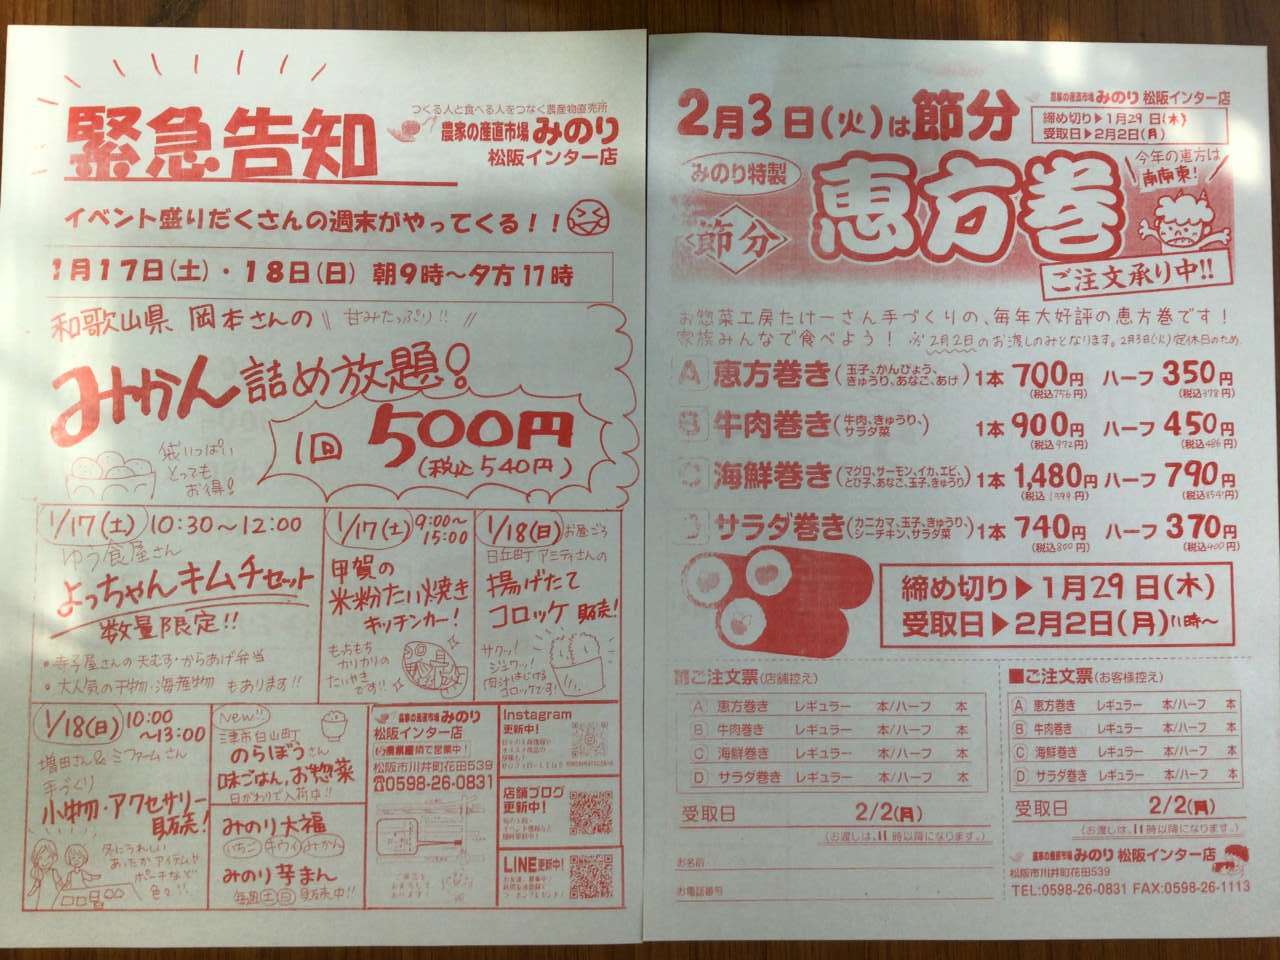 緊急告知
つくる人と食べる人をつなぐ農産物直売所
農家の産直市場 みのり
松阪インター店
イベント盛りだくさんの週末がやってくる!!
1月17日(土)・18日(日) 朝9時～夕方17時
和歌山県 岡本さんの 甘みたっぷり!!
みかん詰め放題!
1回 500円
(税込540円)
袋いっぱい
とっても
お得!
1/17(土) 10:30～12:00
ゆう食屋さん
よっちゃんキムチセット
数量限定!!
・寺子屋さんの天むす・からあげ弁当
・大人気の干物・海産物 もあります!!
1/17(土) 9:00～15:00
甲賀の
米粉たい焼き
キッチンカー!
もちもち
カリカリの
たいやき
です!!
1/18(日) お昼ごろ
日丘町 アミティさんの
揚げたて
コロッケ 販売!
サクッ!
ジュワッ!
肉汁はじける
コロッケです!
1/18(日) 10:00～13:00
増田さん&ミファームさん
手づくり
小物・アクセサリー
販売!
冬にうれしい
あったかアイテムや
ポーチなど
色々!!
New!!
三津市白山町
のらぼうさん
味ごはん、お惣菜
日がわりで入荷中!!
みのり大福
いちご キウイ みかん
みのり芋まん
毎週土日 販売中!!
農家の産直市場 みのり
松阪インター店
松阪市川井町花田539
☎0598-26-0831
Instagram
更新中!
店舗ブログ
更新中!
LINE更新中!
2月3日(火)は節分
農家の産直市場 みのり 松阪インター店
締め切り▶1月29日(木)
受取日▶2月2日(月)
みのり特製
節分
恵方巻
今年の恵方は
南南東!
ご注文承り中!!
お惣菜工房たけーさん手づくりの、毎年大好評の恵方巻です!
家族みんなで食べよう! ※2月2日のお渡しのみとなります。2月3日(火)定休日のため
A 恵方巻き(玉子、かんぴょう、きゅうり、あなご、あげ) 1本 700円(税込756円) ハーフ 350円(税込378円)
B 牛肉巻き(牛肉、きゅうり、サラダ菜) 1本 900円(税込972円) ハーフ 450円(税込486円)
C 海鮮巻き(マグロ、サーモン、イカ、エビ、とび子、あなご、玉子、きゅうり) 1本 1,480円 ハーフ 790円
D サラダ巻き(カニカマ、玉子、きゅうり、シーチキン、サラダ菜) 1本 740円(税込800円) ハーフ 370円(税込400円)
締め切り▶1月29日(木)
受取日▶2月2日(月)11時～
■ご注文票(店舗控え)
A 恵方巻き レギュラー 本/ハーフ 本
B 牛肉巻き レギュラー 本/ハーフ 本
C 海鮮巻き レギュラー 本/ハーフ 本
D サラダ巻き レギュラー 本/ハーフ 本
受取日 2/2(月)
(お渡しは、11時以降になります。)
お名前
お電話番号
■ご注文票(お客様控え)
A 恵方巻き レギュラー 本/ハーフ 本
B 牛肉巻き レギュラー 本/ハーフ 本
C 海鮮巻き レギュラー 本/ハーフ 本
D サラダ巻き レギュラー 本/ハーフ 本
受取日 2/2(月)
(お渡しは、11時以降になります。)
農家の産直市場 みのり 松阪インター店
松阪市川井町花田539
TEL:0598-26-0831 FAX:0598-26-1113